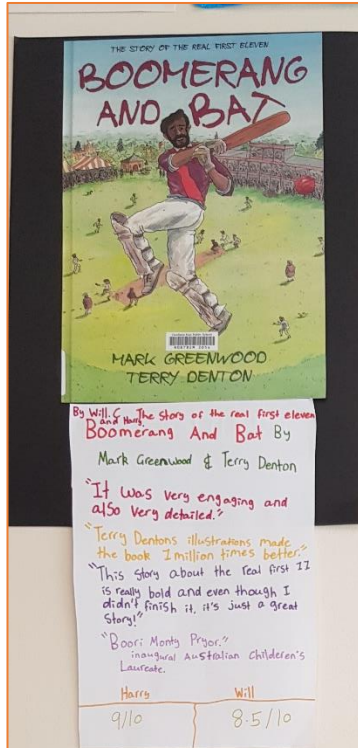 THE STORY OF THE REAL FIRST ELEVEN
BOOMERANG
AND BAT
MARK GREENWOOD
TERRY DENTON
By Will.C and Harry The Story of the real first eleven
Boomerang And Bat By
Mark Greenwood & Terry Denton
"It was very engaging and
also very detailed."
"Terry Dentons illustrations made
the book 1 million times better."
"This story about the real first 11
is really bold and even though I
didn't finish it, it's just a great
story!"
"Boori Monty Pryor."
inaugural Australian Childeren's
Laureate.
Harry Will
9/10 8.5/10